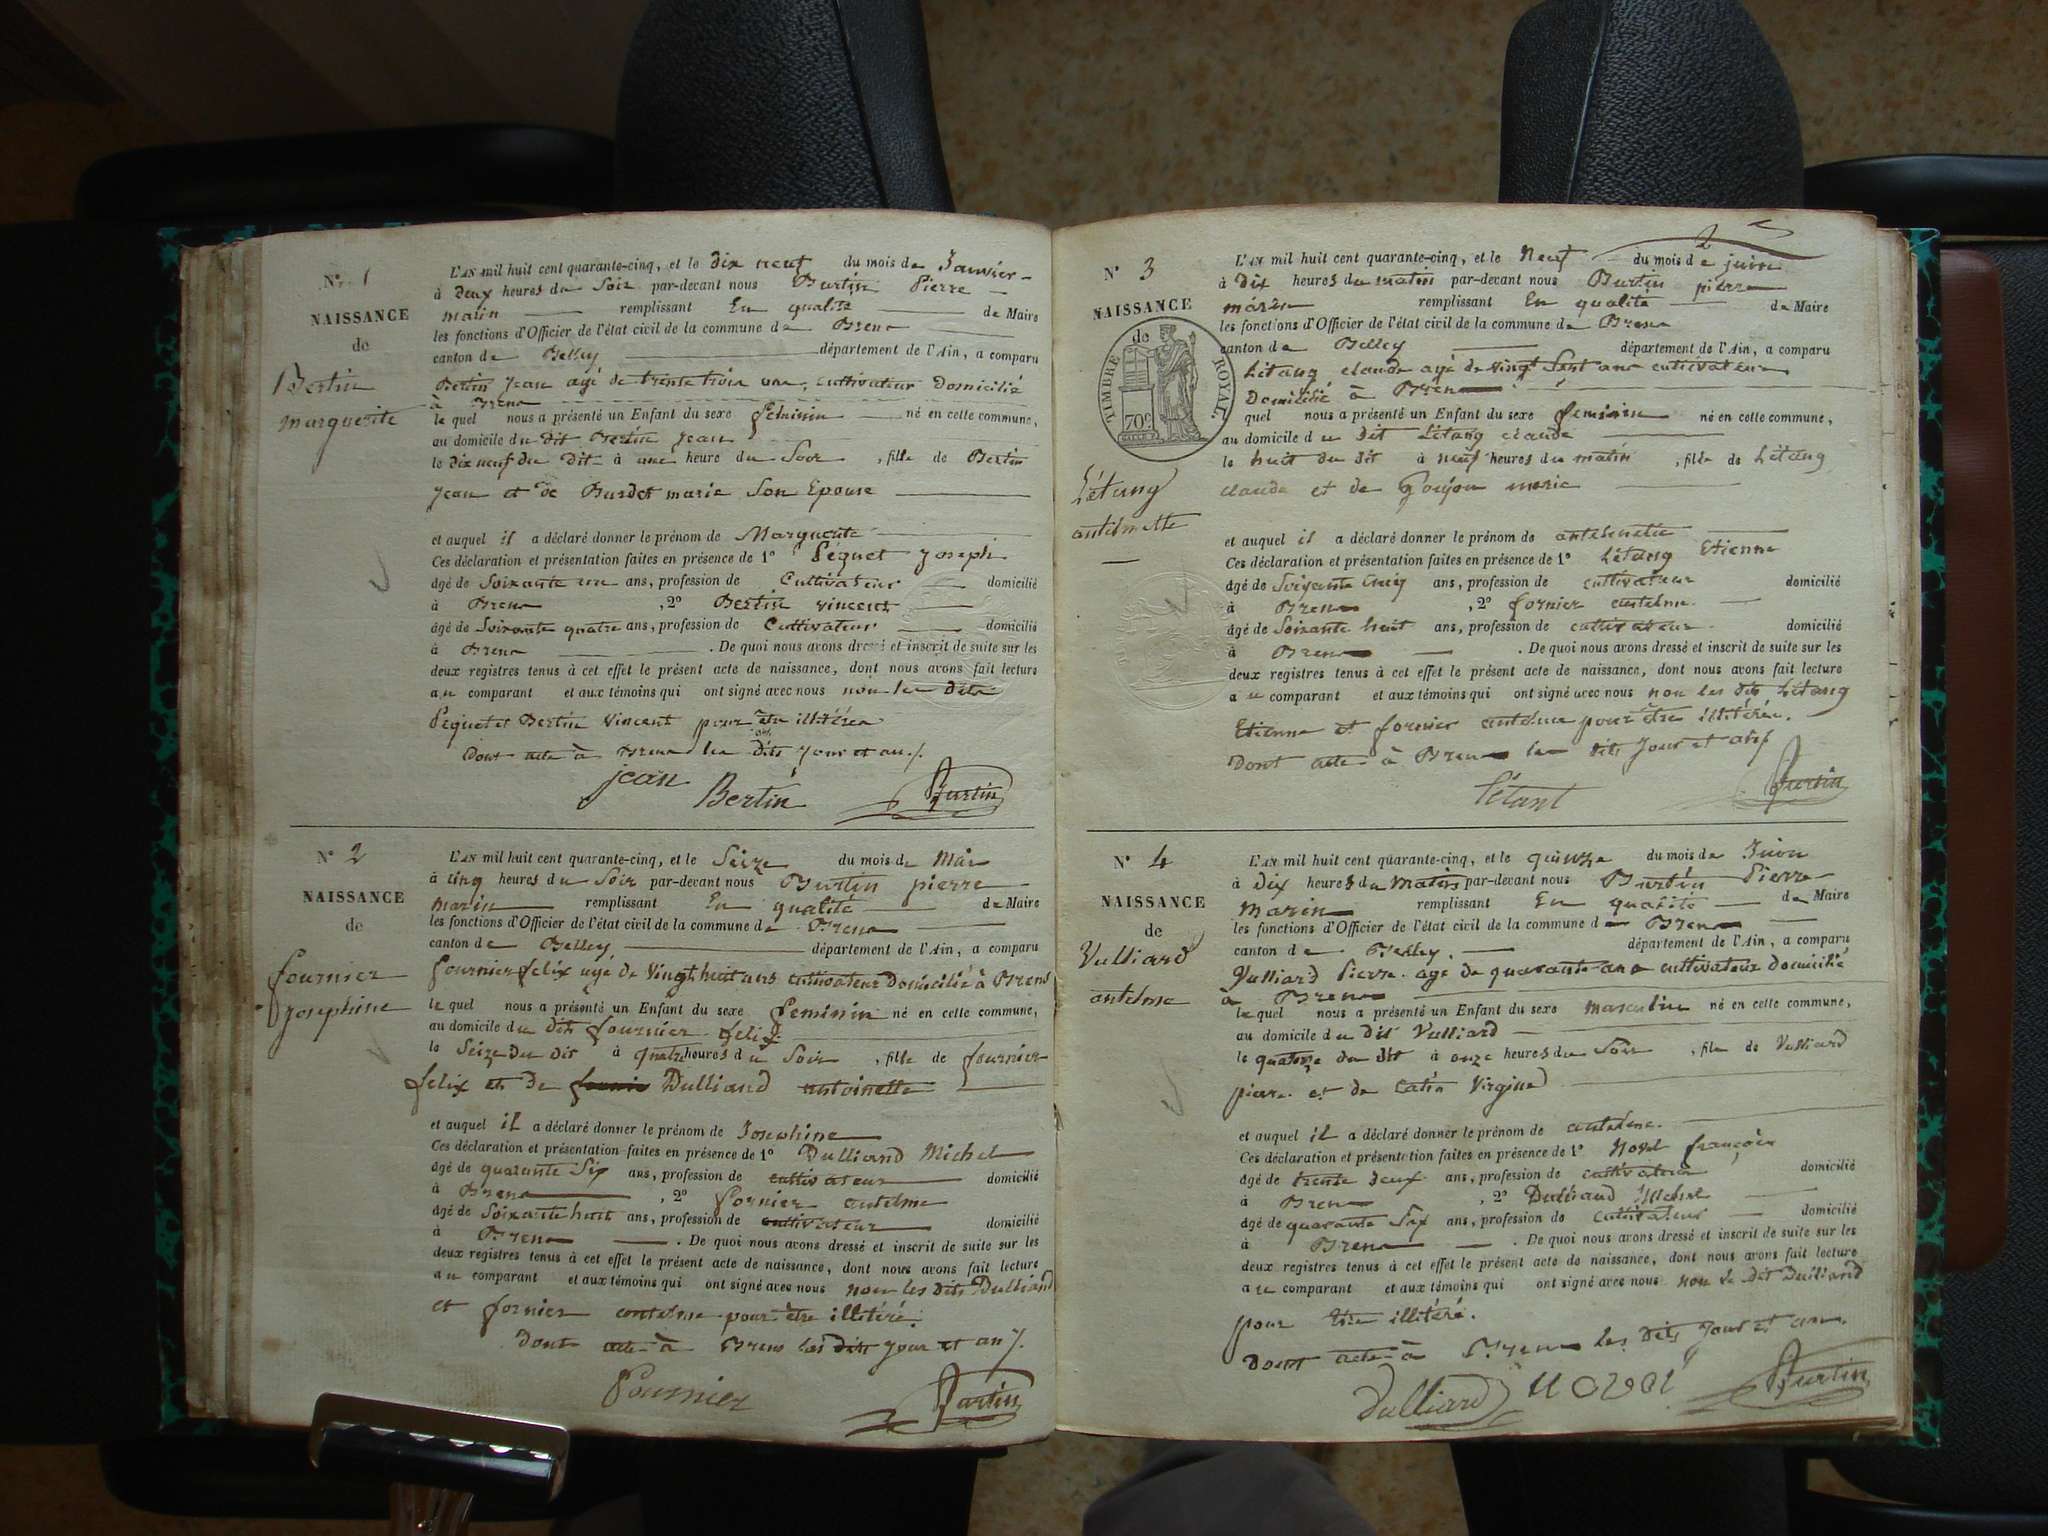 N° 1
NAISSANCE
de
Bertin
marguerite
L'AN mil huit cent quarante-cinq, et le dix neuf du mois de Janvier
à deux heures du Soir par-devant nous Burtin Pierre
marin remplissant En qualité de Maire
les fonctions d'Officier de l'état civil de la commune de Brens
canton de Belley département de l'Ain, a comparu
Bertin Jean agé de trente trois ans, cultivateur Domicilié
à Brens
le quel nous a présenté un Enfant du sexe féminin né en cette commune,
au domicile du dit Bertin Jean
le dix neuf du dit à une heure du Soir, fille de Bertin
Jean et de Burdet marie Son Epouse
et auquel il a déclaré donner le prénom de Marguerite
Ces déclaration et présentation faites en présence de 1° Péquet Joseph
âgé de Soixante un ans, profession de Cultivateur domicilié
à Brens, 2° Bertin vincent
âgé de Soixante quatre ans, profession de Cultivateur domicilié
à Brens. De quoi nous avons dressé et inscrit de suite sur les
deux registres tenus à cet effet le présent acte de naissance, dont nous avons fait lecture
au comparant et aux témoins qui ont signé avec nous non les dits
Péquet et Bertin Vincent pour être illitérés
Dont acte à Brens les dits Jour et an ./.
jean Bertin Burtin
N° 2
NAISSANCE
de
fournier
Josephine
L'AN mil huit cent quarante-cinq, et le Seize du mois de Mai
à cinq heures du Soir par-devant nous Burtin pierre
marin remplissant En qualité de Maire
les fonctions d'Officier de l'état civil de la commune de Brens
canton de Belley département de l'Ain, a comparu
fournier felix agé de vingt huit ans cultivateur Domicilié à Brens
le quel nous a présenté un Enfant du sexe feminin né en cette commune,
au domicile du dit fournier felix
le Seize du dit à quatre heures du Soir, fille de fournier
felix et de Dulliand antoinette
et auquel il a déclaré donner le prénom de Josephine
Ces déclaration et présentation faites en présence de 1° Dulliand Michel
âgé de quarante Six ans, profession de cultivateur domicilié
à Brens, 2° fornier antelme
âgé de Soixante huit ans, profession de cultivateur domicilié
à Brens. De quoi nous avons dressé et inscrit de suite sur les
deux registres tenus à cet effet le présent acte de naissance, dont nous avons fait lecture
au comparant et aux témoins qui ont signé avec nous non les dits Dulliand
et fornier antelme pour être illitéré.
Dont acte à Brens les dits Jour et an ./.
Fournier Burtin
2
N° 3
NAISSANCE
de
TIMBRE ROYAL
70c
Létang
antelmette
L'AN mil huit cent quarante-cinq, et le Neuf du mois de juin
à dix heures du matin par-devant nous Burtin pierre
marin remplissant En qualité de Maire
les fonctions d'Officier de l'état civil de la commune de Brens
canton de Belley département de l'Ain, a comparu
Létang claude agé de vingt Sept ans cultivateur
Domicilié à Brens
quel nous a présenté un Enfant du sexe feminin né en cette commune,
au domicile du dit Létang claude
le huit du dit à neuf heures du matin, fille de Létang
claude et de Goujon marie
et auquel il a déclaré donner le prénom de antelmette
Ces déclaration et présentation faites en présence de 1° Létang Etienne
âgé de Soixante ans, profession de cultivateur domicilié
à Brens, 2° fornier antelme
âgé de Soixante huit ans, profession de cultivateur domicilié
à Brens. De quoi nous avons dressé et inscrit de suite sur les
deux registres tenus à cet effet le présent acte de naissance, dont nous avons fait lecture
au comparant et aux témoins qui ont signé avec nous non les dits Létang
Etienne et fornier antelme pour être illitérés.
Dont acte à Brens les dits Jour et an ./.
Létant Burtin
N° 4
NAISSANCE
de
Vulliard
antelme
L'AN mil huit cent quarante-cinq, et le quinze du mois de Juin
à dix heures du Matin par-devant nous Burtin Pierre
Marin remplissant En qualité de Maire
les fonctions d'Officier de l'état civil de la commune de Brens
canton de Belley. département de l'Ain, a comparu
Vulliard Pierre. agé de quarante ans cultivateur domicilié
à Brens
le quel nous a présenté un Enfant du sexe masculin né en cette commune,
au domicile du dit Vulliard
le quatorze du dit à onze heures du Soir, fils de Vulliard
pierre et de Catin Virginie
et auquel il a déclaré donner le prénom de antelme.
Ces déclaration et présentation faites en présence de 1° Novel françois
âgé de trente deux ans, profession de cultivateur domicilié
à Brens, 2° Dulliand Michel
âgé de quarante Six ans, profession de cultivateur domicilié
à Brens. De quoi nous avons dressé et inscrit de suite sur les
deux registres tenus à cet effet le présent acte de naissance, dont nous avons fait lecture
au comparant et aux témoins qui ont signé avec nous non le dit Dulliand
pour être illitéré.
Dont acte à Brens les dits Jour et an.
Burtin